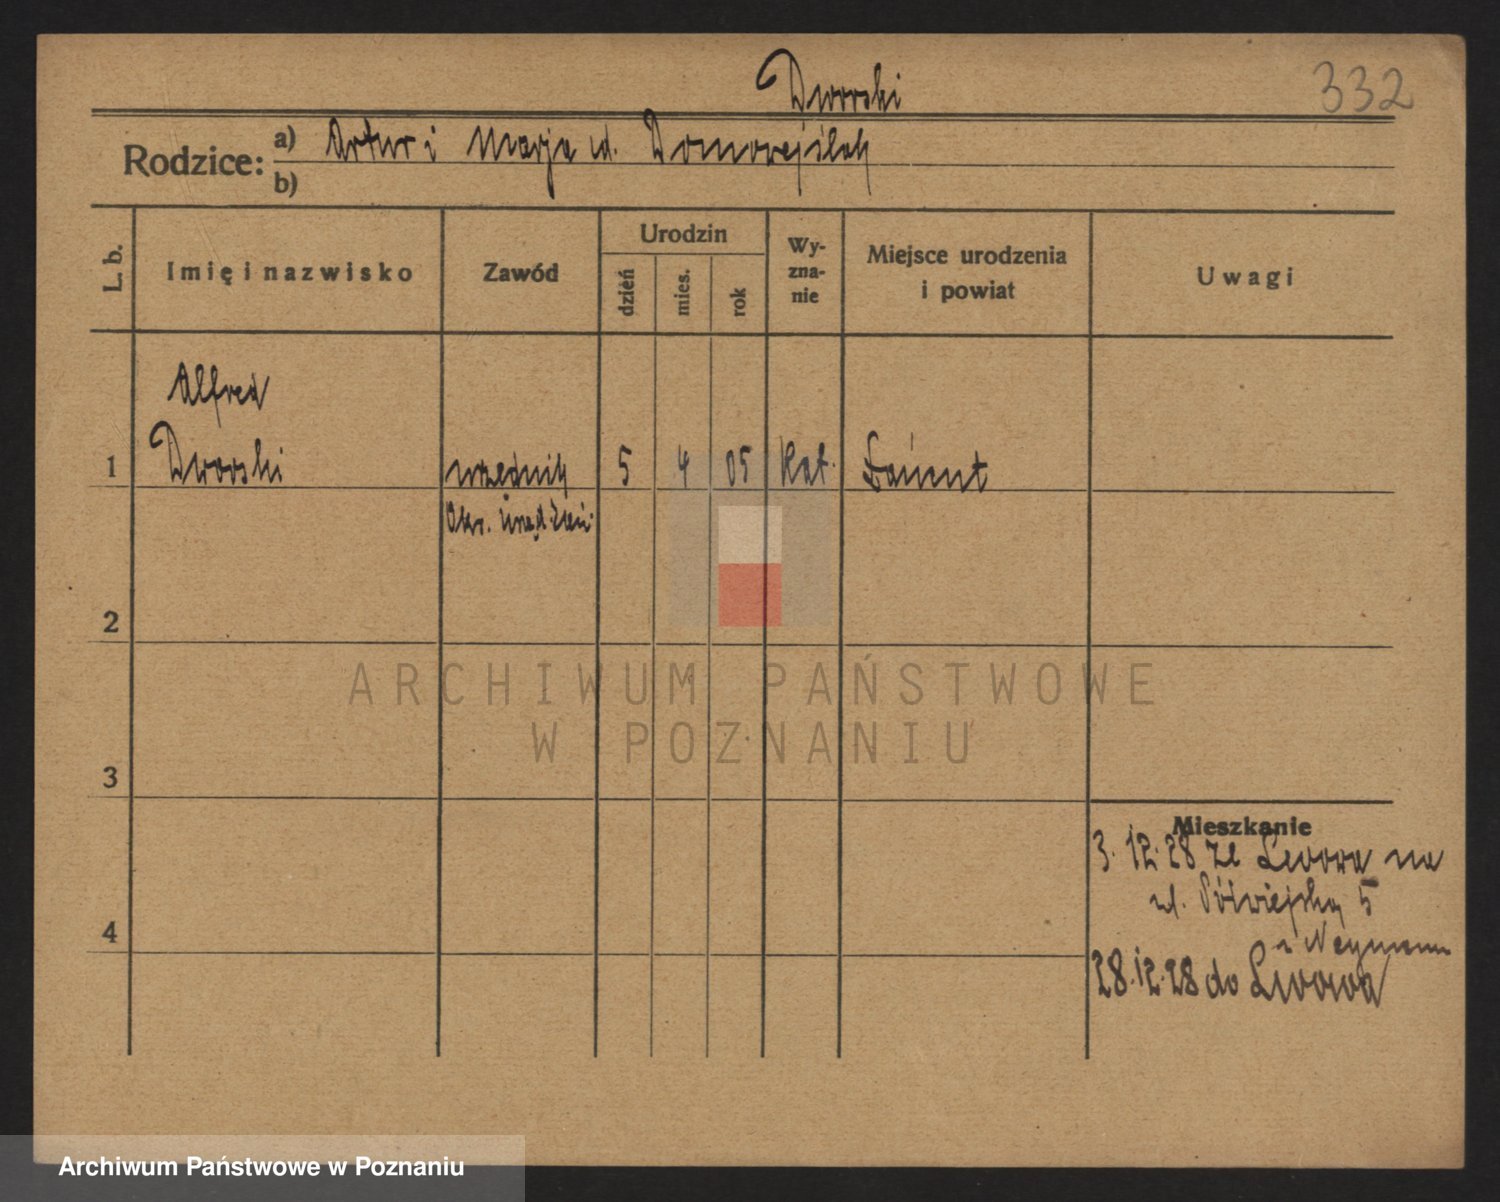 Dworski
332
Rodzice: a) Artur i Marja
b)
L. b.
Imię i nazwisko
Zawód
Urodzin
dzień
mies.
rok
Wy-
zna-
nie
Miejsce urodzenia
i powiat
Uwagi
Alfred
1 Dworski urzędnik 5 4 05 kat. Łańcut
Okr. Urząd Ziem.
2
ARCHIWUM PAŃSTWOWE
W POZNANIU
3
Mieszkanie
3. 12. 28 ze Lwowa na
ul. Półwiejską 5
4
28. 12. 28 do Lwowa
Archiwum Państwowe w Poznaniu